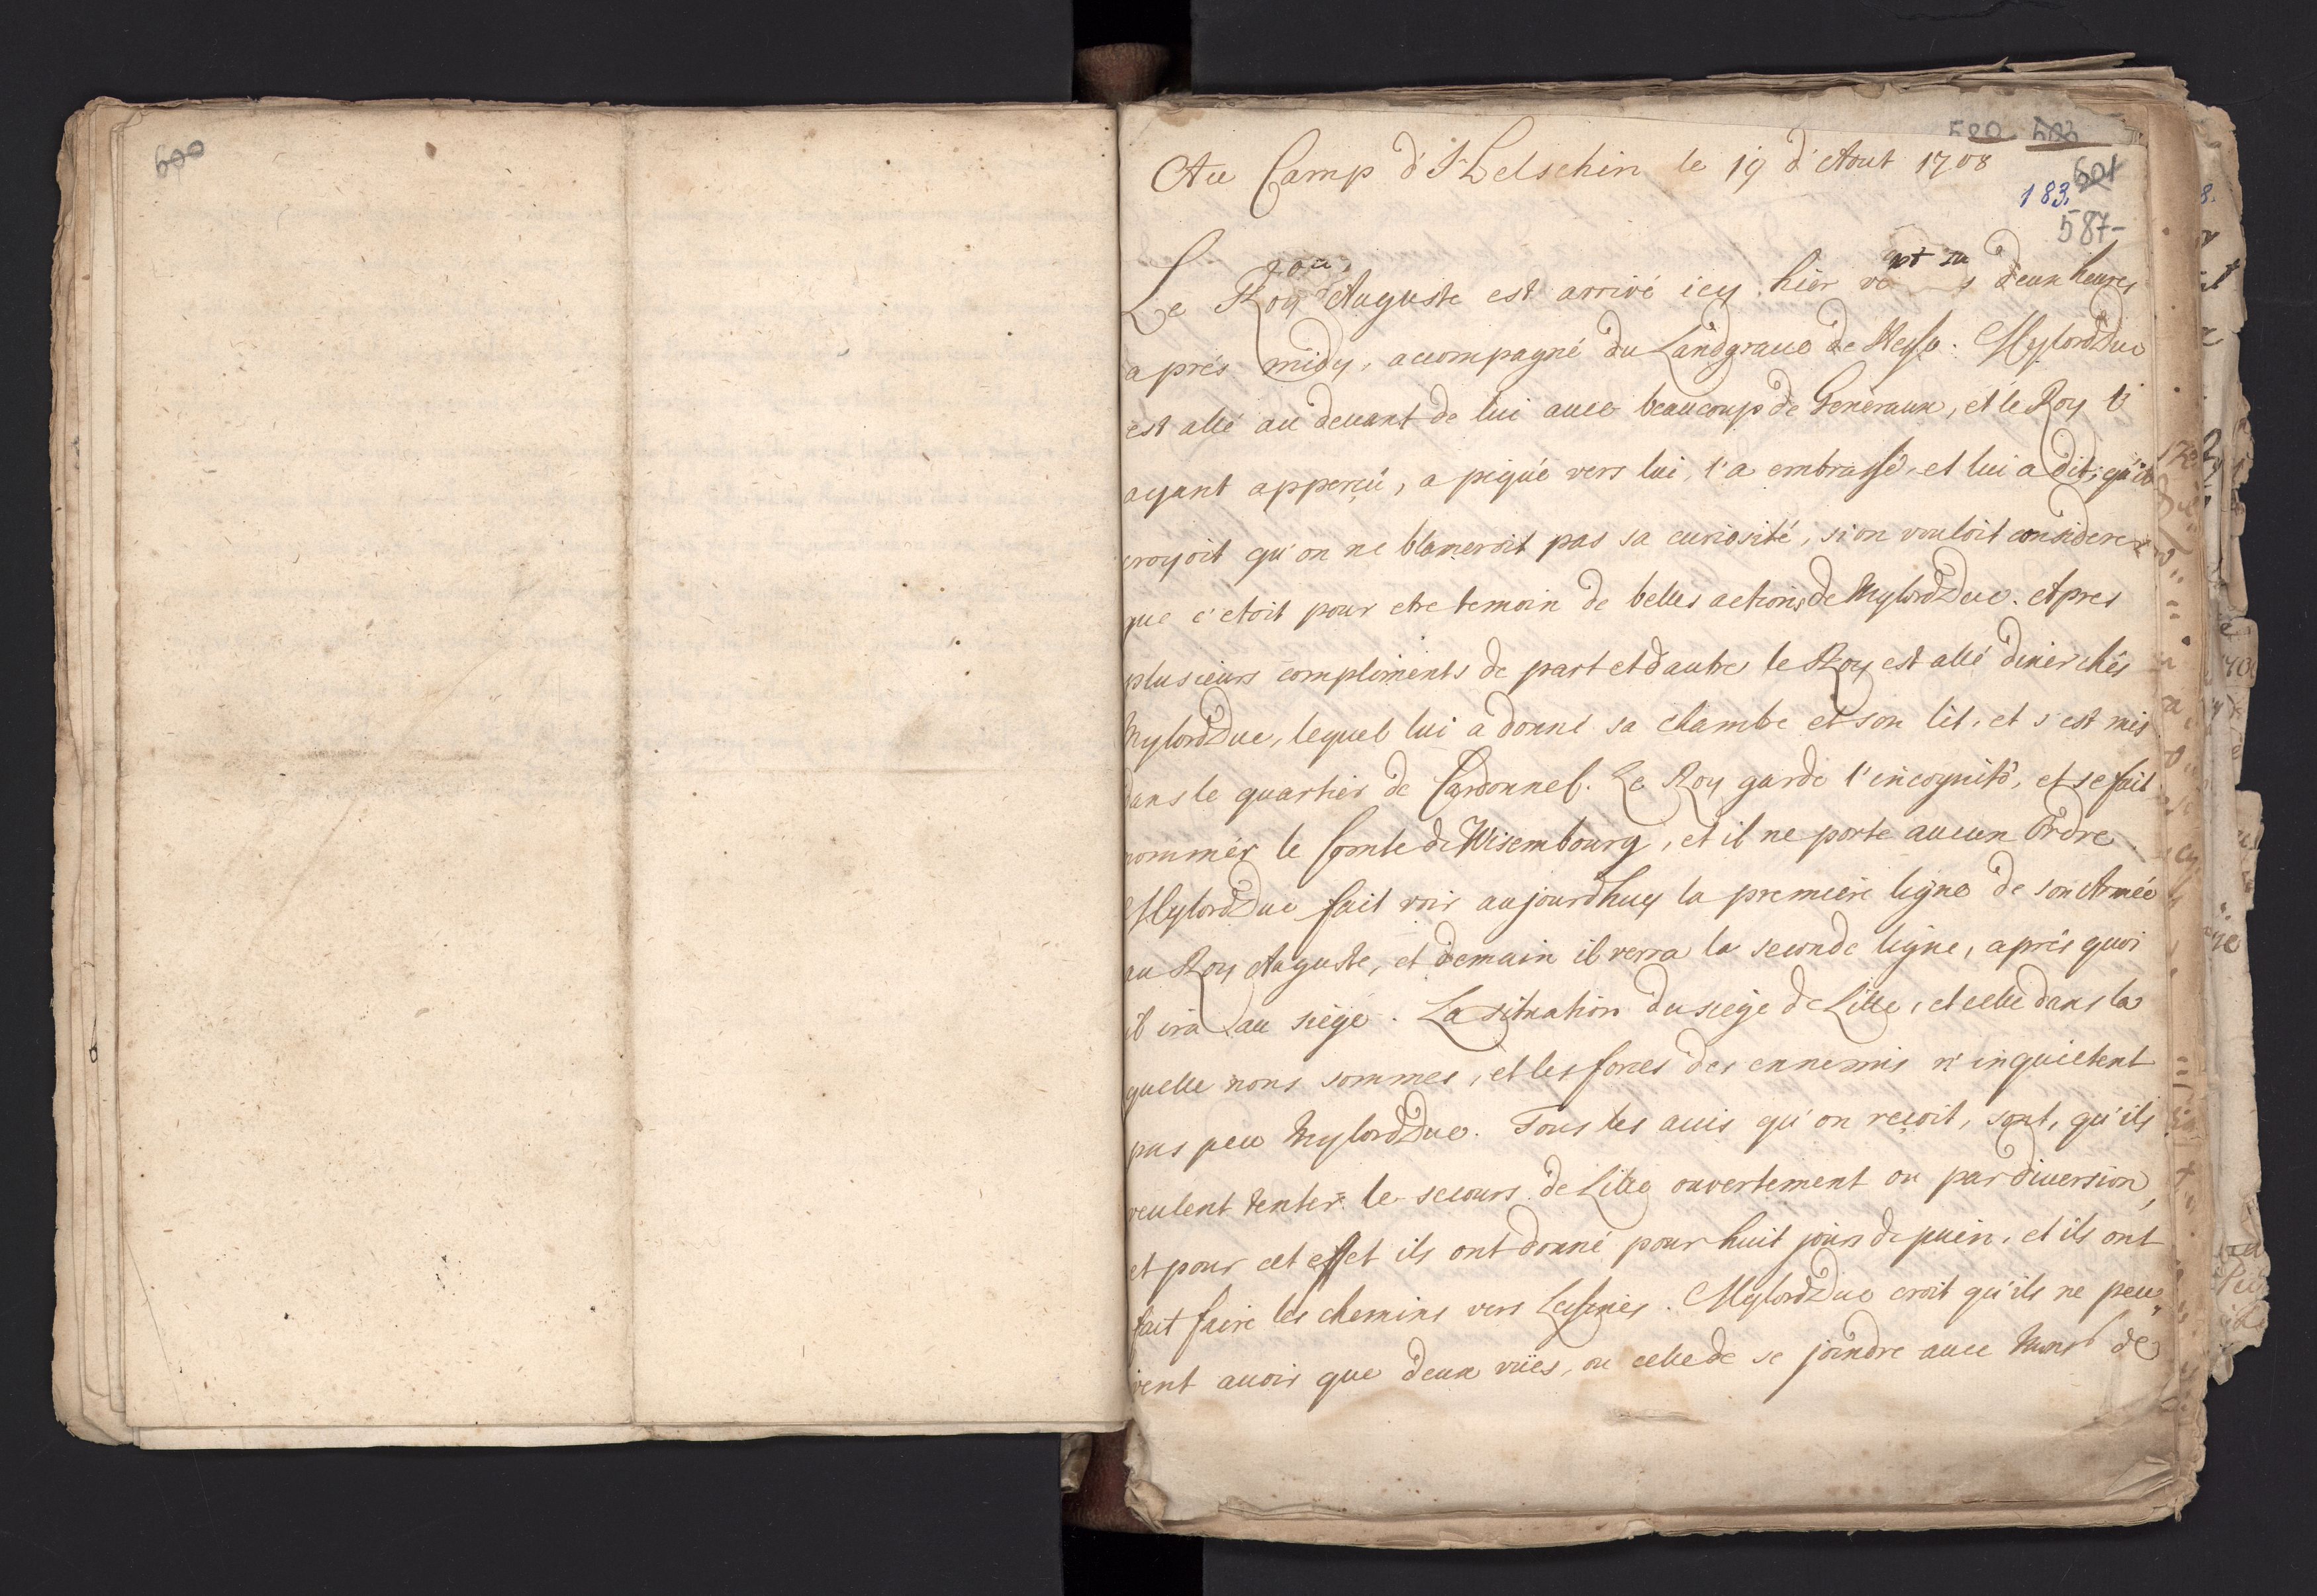 600
580 503
Au Camp d'Helschin le 19 d'Aout 1708
601
183.
587-
Le Roy Auguste est arrivé icy hier deux heures
aprés midy, accompagné du Landgraue de Hesse. Mylord Duc
est allé au deuant de lui auec beaucoup de Generaux, et le Roy l'
ayant apperçû, a piqué vers lui, l'a embrassé, et lui a dit, qu'il
croyoit qu'on ne blameroit pas sa curiosité, si on vouloit considerer
que c'etoit pour etre temoin de belles actions de Mylord Duc. Apres
plusieurs compliments de part et d'autre le Roy est allé diner chés
Mylord Duc, lequel lui a donné sa chambre et son lit, et s'est mis
dans le quartier de Cardonnel. Le Roy garde l'incognitò, et se fait
nommér le Comte de Wisembourg, et il ne porte aucun Ordre.
Mylord Duc fait voir aujourdhuy la premiere ligne de son Armée
au Roy Auguste, et demain il verra la seconde ligne, aprés quoi
il ira au siége. La situation du siege de Lille, et celle dans la
quelle nous sommes, et les forces des ennemis n'inquiètent
pas peu Mylord Duc. Tous les auis qu'on reçoit, sont, qu'ils
veulent tenter le secours de Lille ouvertement ou par diuersion,
et pour cet effet ils ont donné pour huit jours de pain, et ils ont
fait faire les chemins vers Lessines. Mylord Duc croit qu'ils ne peu,,
vent auoir que deux vües, ou celle de se joindre auec Monsr de